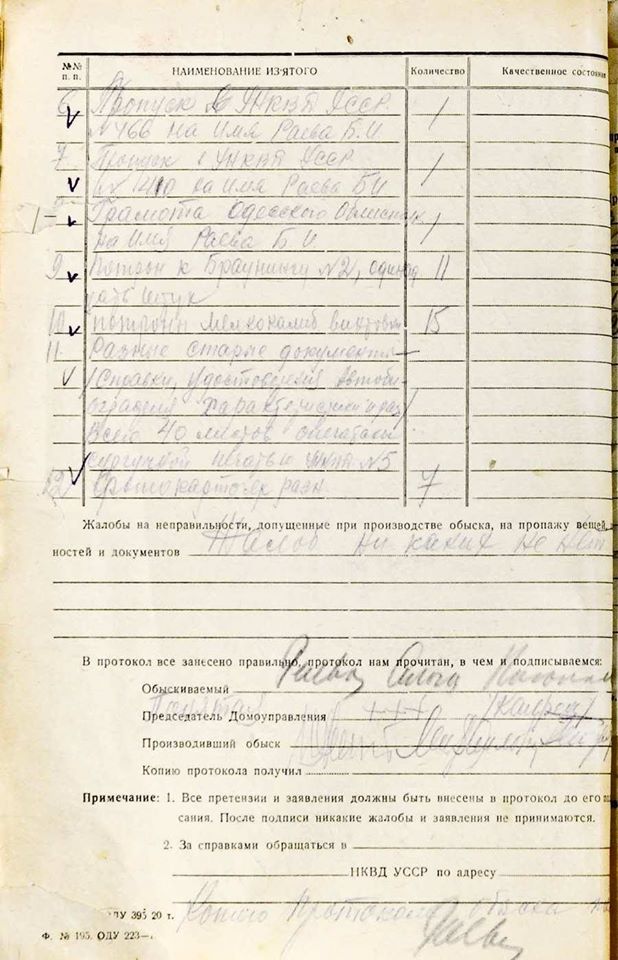 №№ НАИМЕНОВАНИЕ ИЗ'ЯТОГО Количество Качественное состоя
п. п.
6 Пропуск в УНКВД УССР
№ 466 на имя Раева Б. И 1
7 Пропуск в УНКВД УССР
на имя Раева Б И 1
Грамота Одесского
на имя Раева Б. И 1
9 Патрон к Браунингу №2, одинад 11
цать штук
10 патроны мелкокалиб винтовки 15
11 Разные старые документы
/Справки, удостоверения автоби
ография характеристики и раз/
Всего 40 листов опечатаны
сургучной печатью УНКВД №5
12 разн. 7
Жалобы на неправильности, допущенные при производстве обыска, на пропажу вещей,
ностей и документов Жалоб ни каких не
В протокол все занесено правильно, протокол нам прочитан, в чем и подписываемся:
Обыскиваемый Раева
Понятая
Председатель Домоуправления +++
Производивший обыск
Копию протокола получил
Примечание: 1. Все претензии и заявления должны быть внесены в протокол до его
сания. После подписи никакие жалобы и заявления не принимаются.
2. За справками обращаться в
НКВД УССР по адресу
Копию Протокола обыска
ОДУ 395 20 т.
Ф. № 195. ОДУ 223—